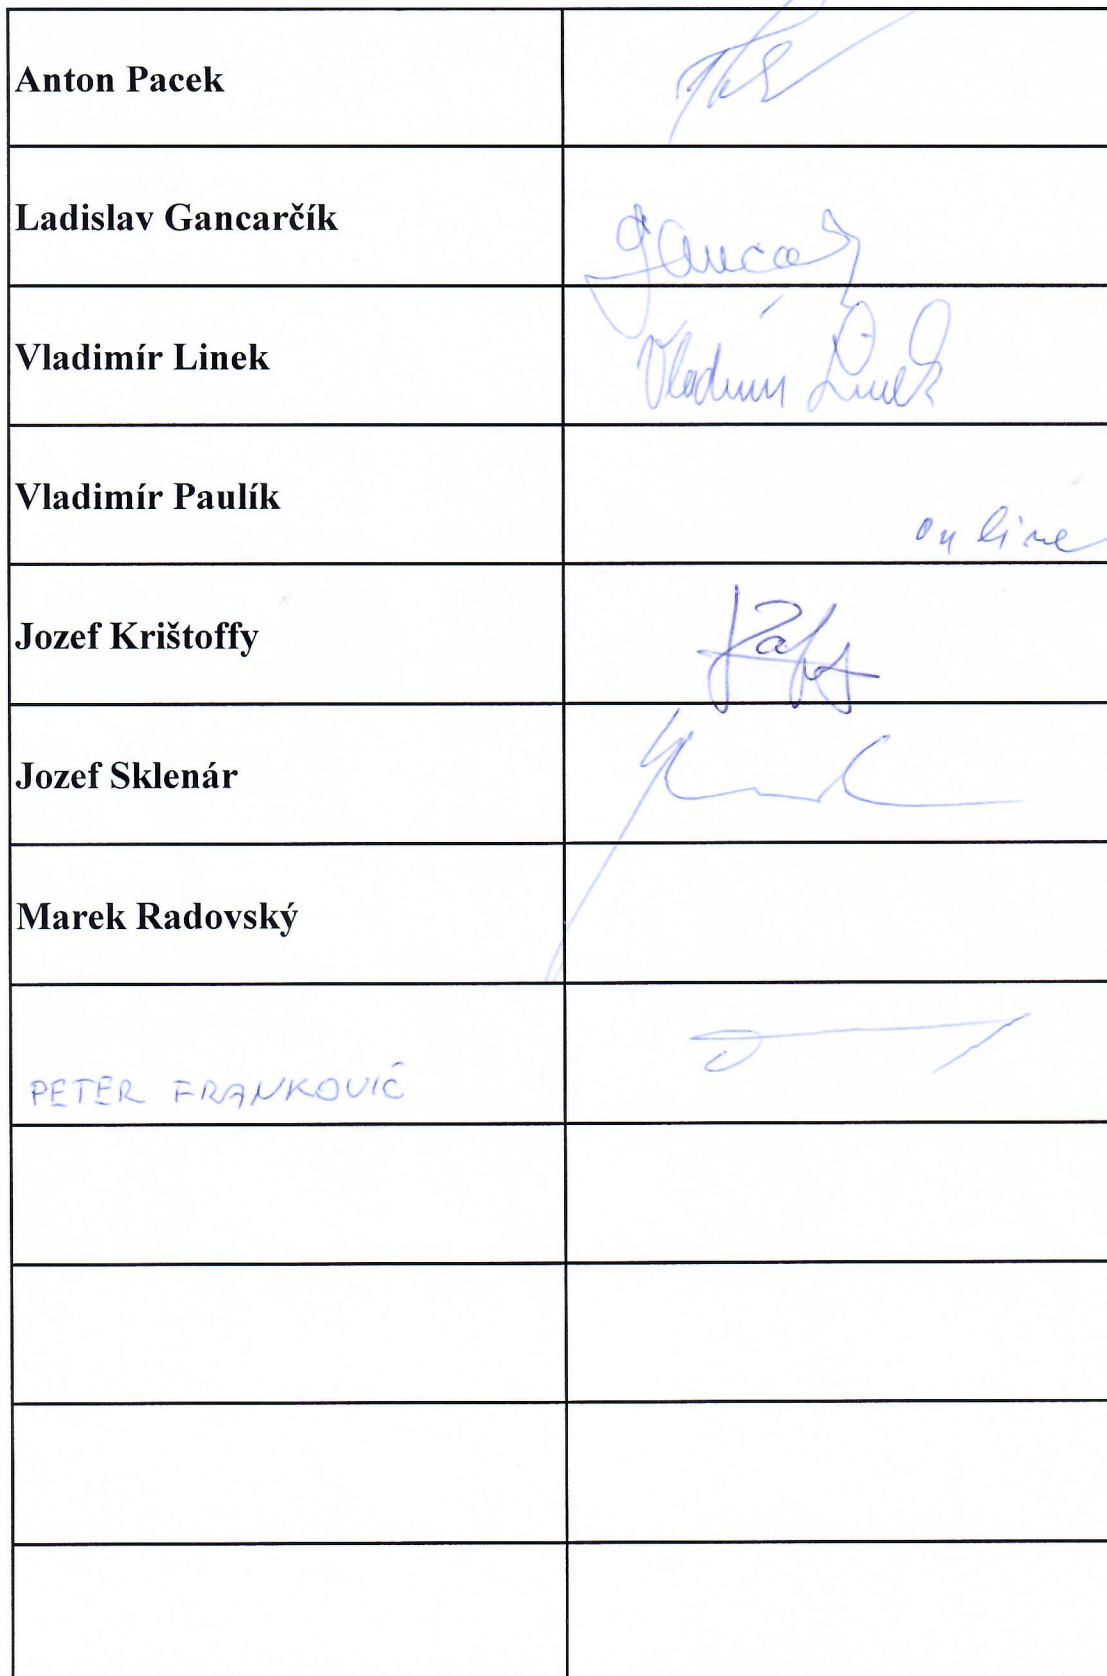 Anton Pacek
Ladislav Gancarčík
Vladimír Linek
Vladimír Linek
Vladimír Paulík
on line
Jozef Krištoffy
Jozef Sklenár
Marek Radovský
PETER FRANKOVIČ